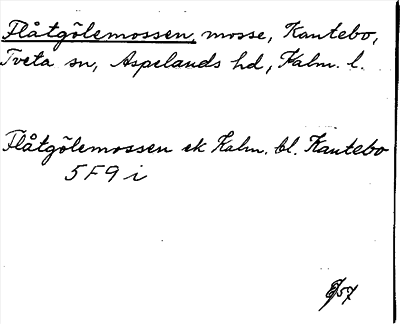 Flåtgölemossen, mosse, Kantebo,
Tveta sn, Aspelands hd, Kalm. l.
Flåtgölemossen ek Kalm. bl. Kantebo
5F9 i
57